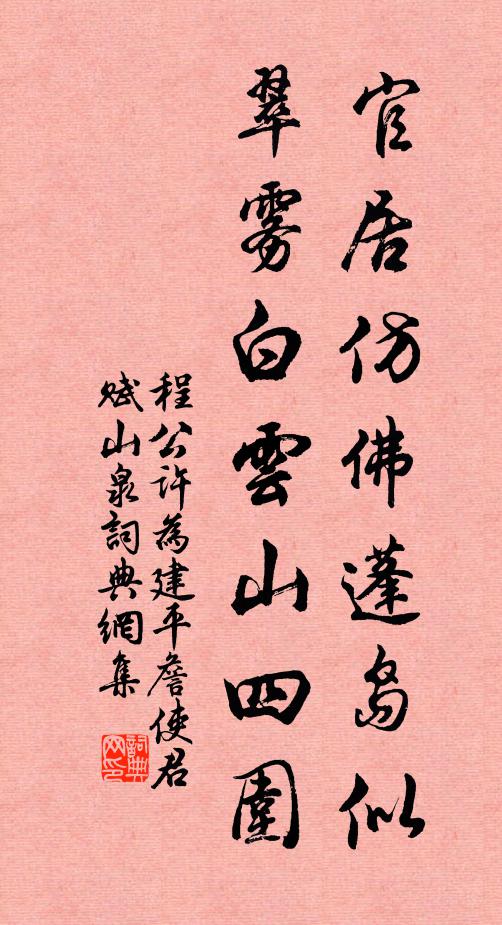 官居仿佛蓬島似
翠霧白雲山四圍
程公許為建平詹使君
賦山泉詞典網集
詞典網印